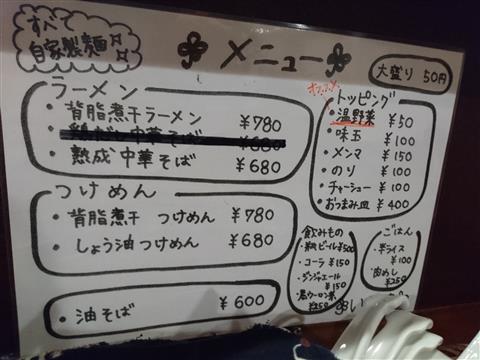 すべて
自家製麺
メニュー
大盛り 50円
ラーメン
・背脂煮干ラーメン ¥780
中華そば ¥680
・熟成中華そば ¥680
つけめん
・背脂煮干 つけめん ¥780
・しょう油つけめん ¥680
・油そば ¥600
オススメ
トッピング
・温野菜 ¥50
・味玉 ¥100
・メンマ ¥150
・のり ¥100
・チャーシュー ¥100
・おつまみ皿 ¥400
飲みもの
・瓶ビール ¥500
・コーラ ¥150
・ジンジャエール
¥150
・黒ウーロン茶
¥250
ごはん
・半ライス
¥100
・肉めし
¥250